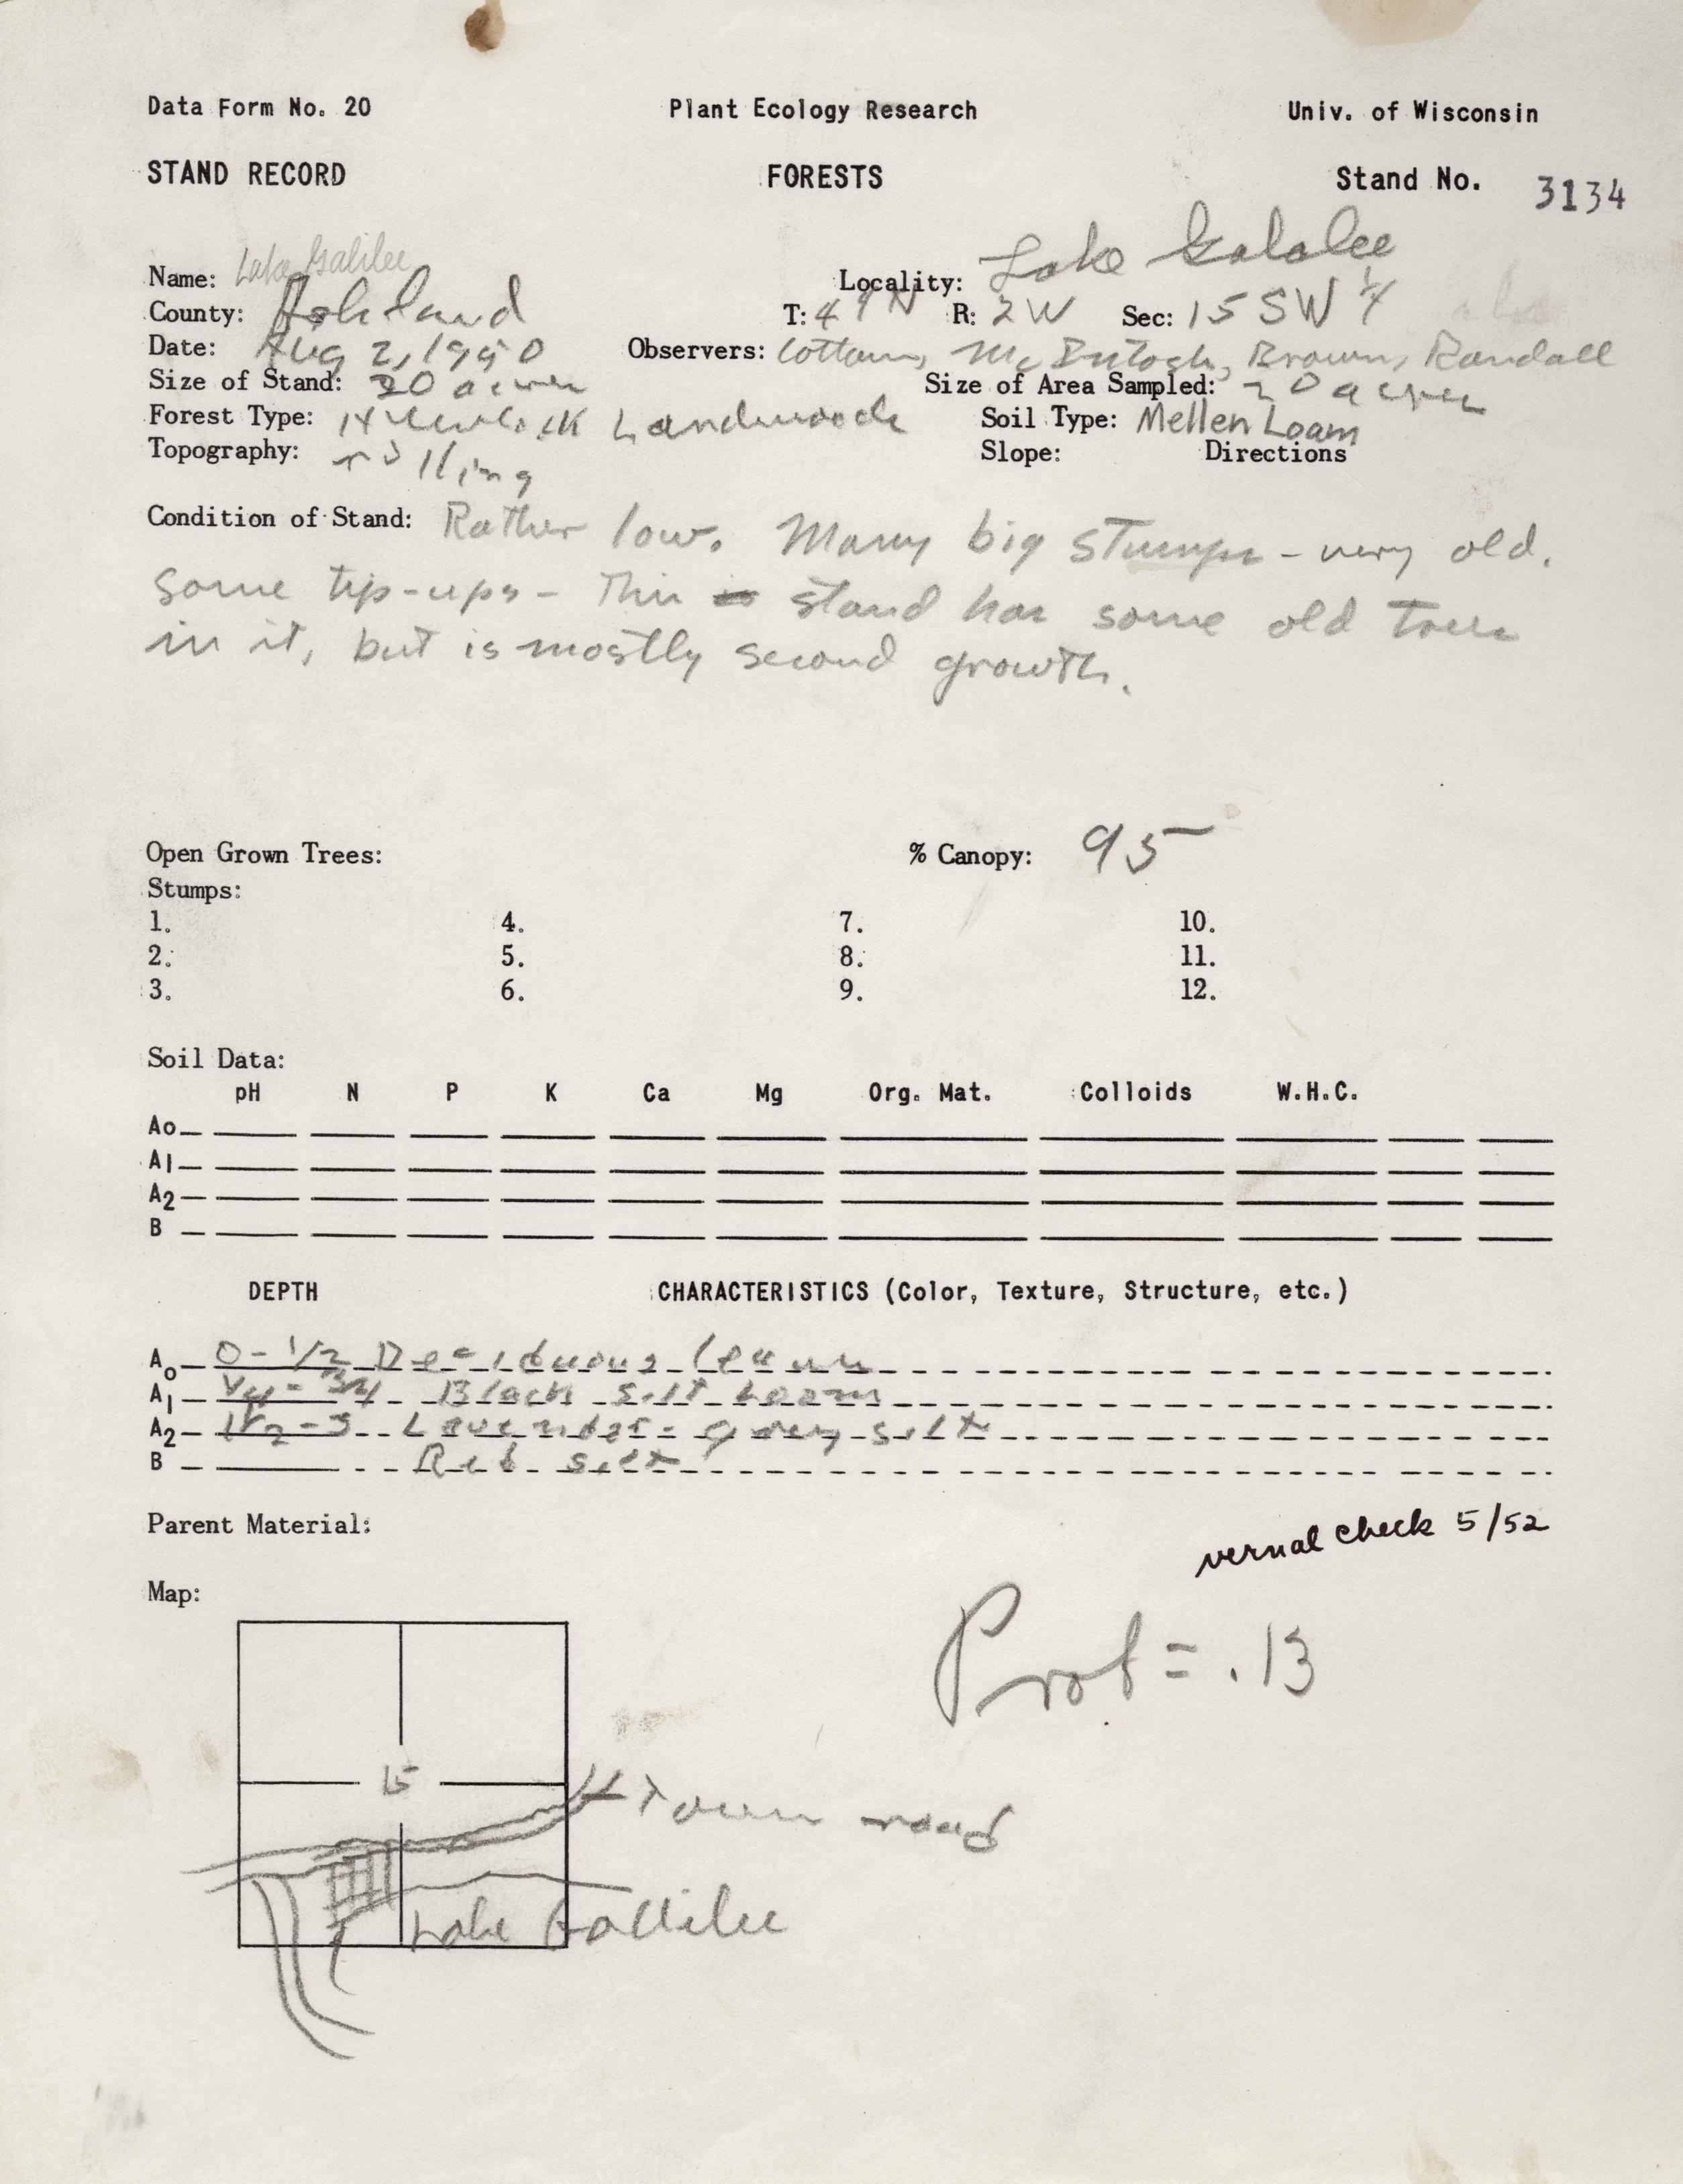 Data Form No. 20 Plant Ecology Research Univ. of Wisconsin
STAND RECORD FORESTS Stand No. 3134
Name: Lake Galilee Locality: Lake Galalee
County: Ashland T: 44N R: 2W Sec: 15 SW 1/4
Date: Aug 2, 1950 Observers: Cottam, McIntosh, Brown, Randall
Size of Stand: 20 acres Size of Area Sampled: 20 acres
Forest Type: Hemlock Hardwoods Soil Type: Mellen Loam
Topography: rolling Slope: Directions
Condition of Stand: Rather low. Many big stumps - very old.
Some tip-ups - This stand has some old trees
in it, but is mostly second growth.
Open Grown Trees: % Canopy: 95
Stumps:
1. 4. 7. 10.
2. 5. 8. 11.
3. 6. 9. 12.
Soil Data:
pH N P K Ca Mg Org. Mat. Colloids W.H.C.
Ao
A1
A2
B
DEPTH CHARACTERISTICS (Color, Texture, Structure, etc.)
Ao 0-1/2 Deciduous leaves
A1 Black silt loam
A2 1 1/2-3 Lavender-grey silt
B Red silt
Parent Material:
vernal check 5/52
Map:
Prof = .13
15
Town road
Lake Gallilee